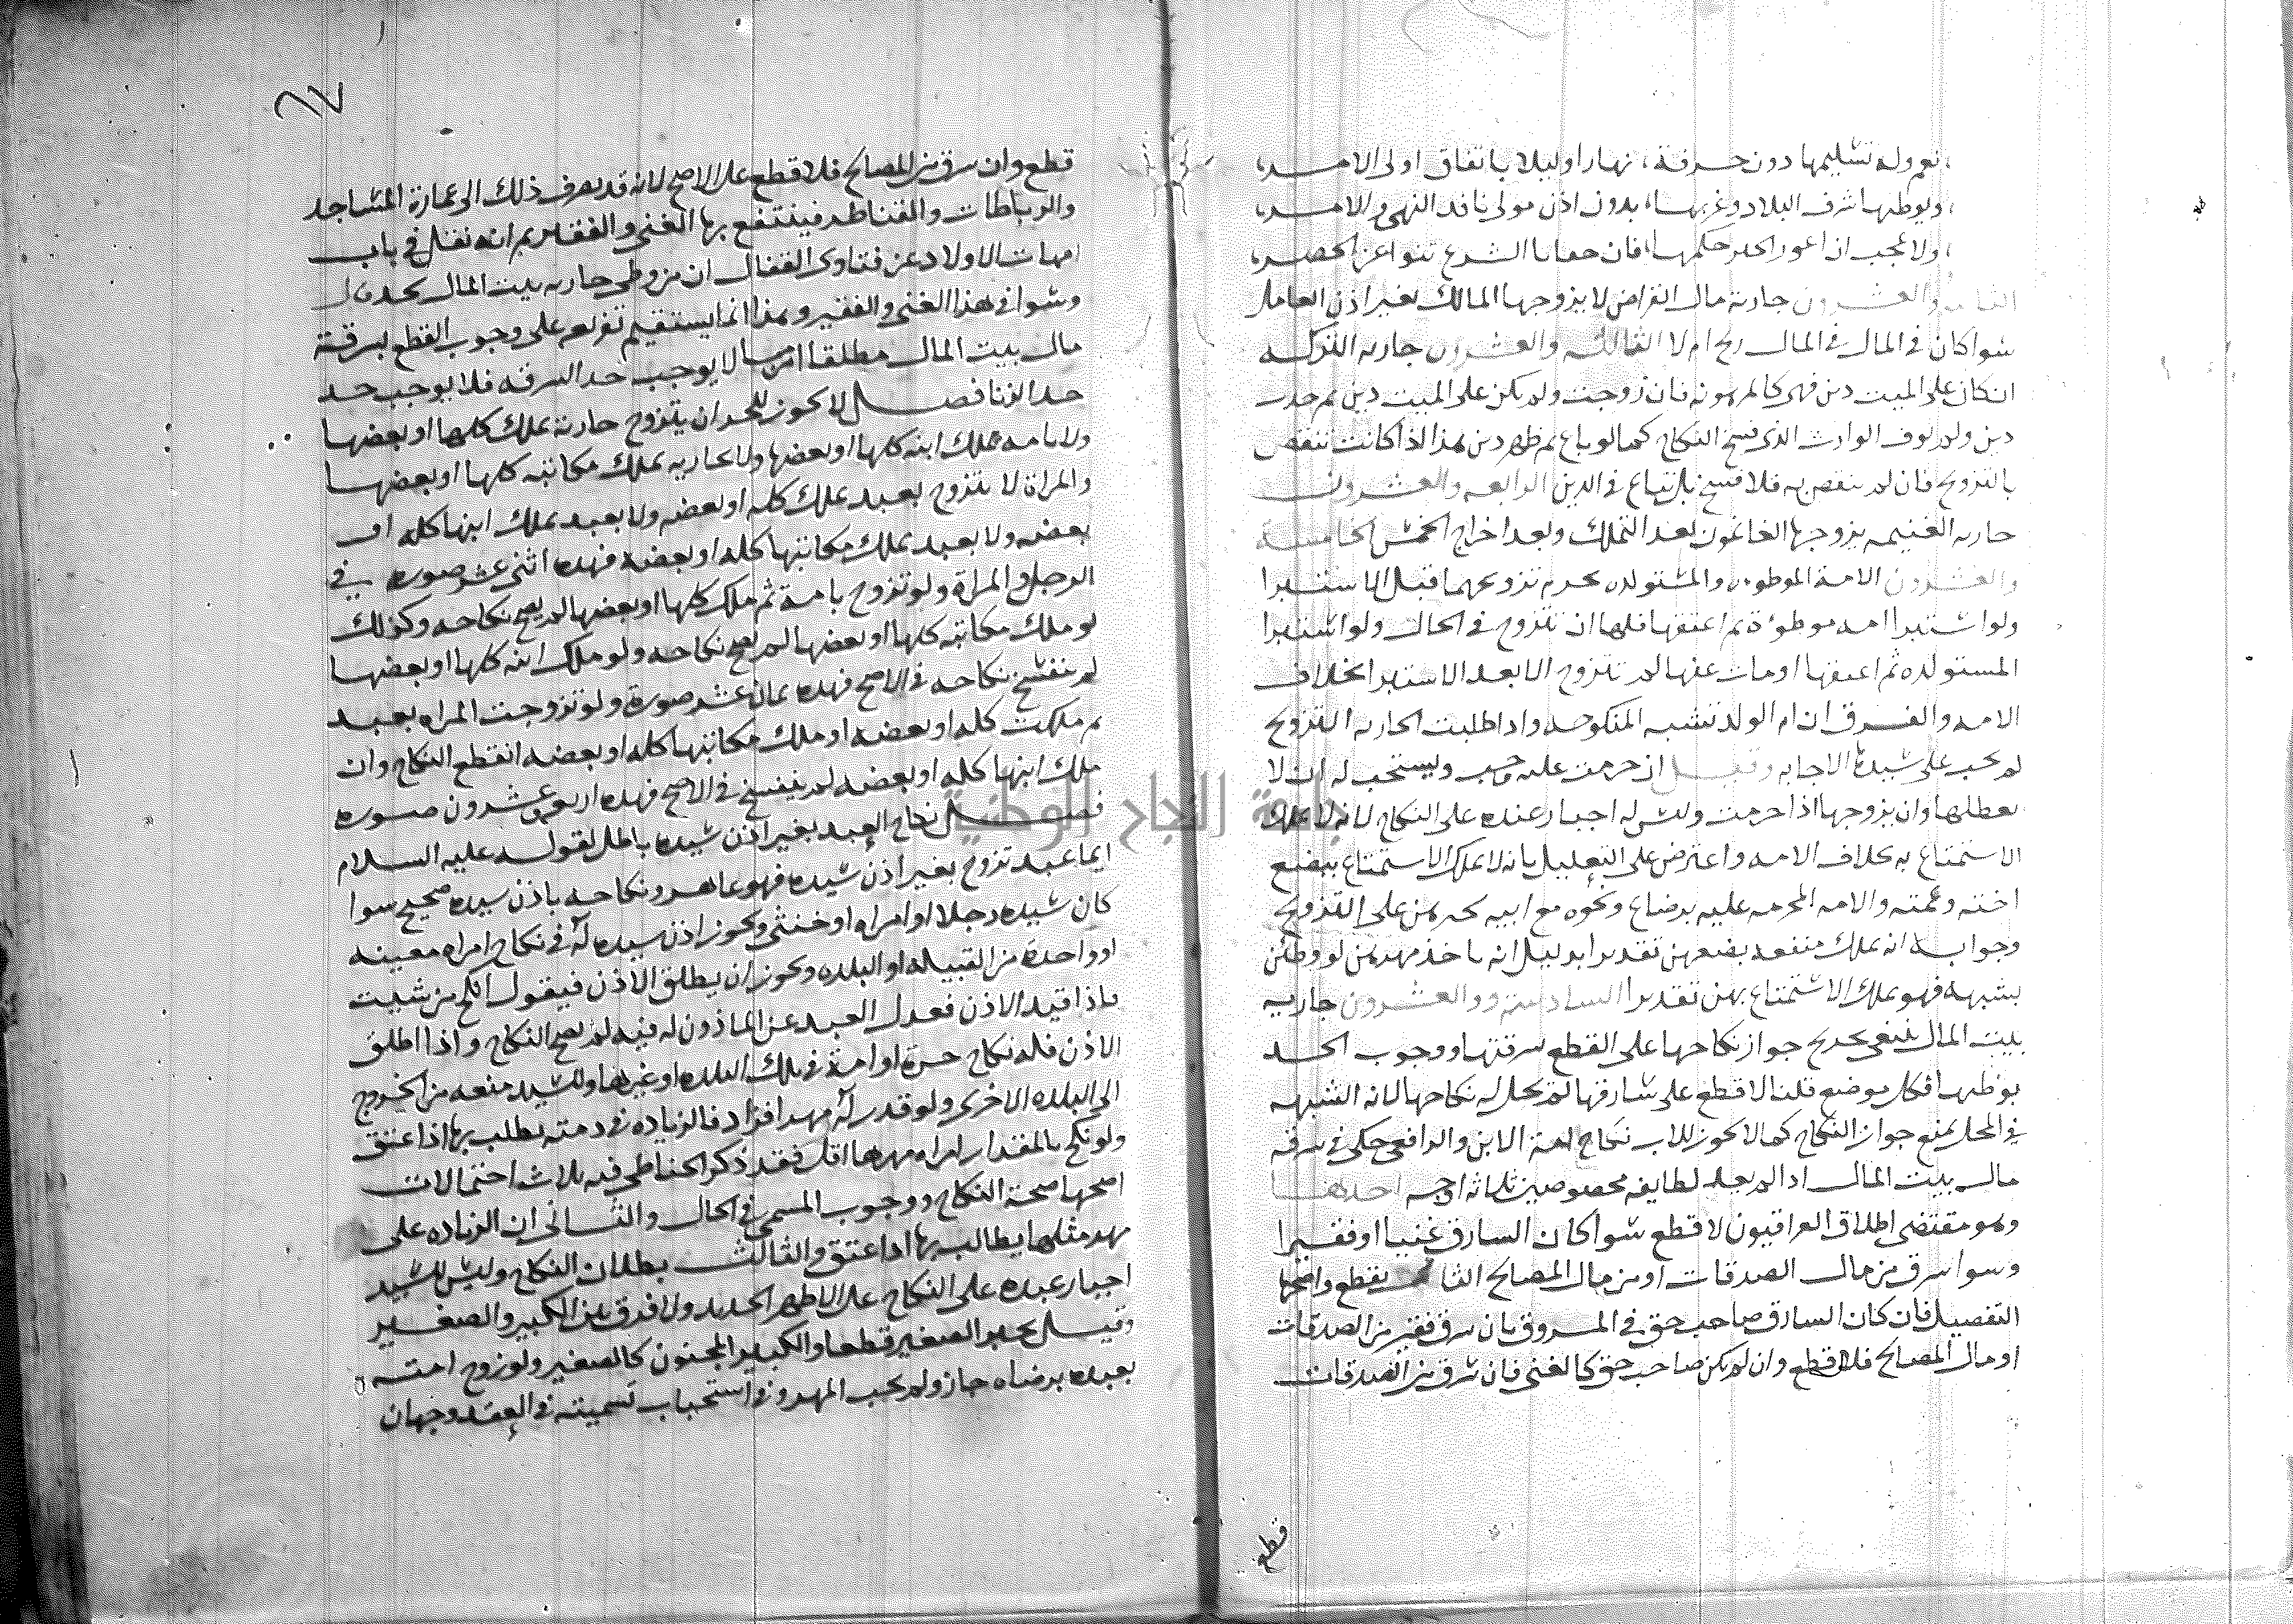 نعم وله تسليمها دون حرفة، نهارا وليلا باتفاق اولى الامر،
ويوطيها شرق البلاد وغربها، بدون اذن مولى نافذ النهى والامر،
ولا عجب ان اعوز الحد حكمها، فان خفايا الشرع تنبو اعن الحصر،
الثانية والعشرون جارية مال القراض لا يزوجها المالك بغير اذن العامل
سوا كان في المال في المال ربح ام لا الثالثة والعشرون جاريه التركه
ان كان على الميت دين فهى كالمرهونه فان زوجت ولم يكن على الميت دين ثم حدث
دين ولم يوف الوارث الذى فسخ النكاح كما لو باع ثم ظهر دين هذا اذا كانت تنقص
بالتزويج فان لم ينقص به فلا فسخ بل تباع في الدين الرابعه والعشرون
جاريه الغنيمه يزوجها الغانمون بعد التملك وبعد اخراج الخمس الخامسة
والعشرون الامة الموطوءه والمستولده يحرم تزويجهما قبل الاستبرا
ولو استبرا امه موطوءة ثم اعتقها فلها ان تتزوج في الحال ولو استبرا
المستولده ثم اعتقها او مات عنها لم تتزوج الا بعد الاستبرا بخلاف
الامه والفرق ان ام الولد تشبه المنكوحه واذا طلبت الجاريه التزويج
لم يجب على سيدها الاجابه وقيل ان حرمت عليه وجب ويستحب له ان لا
يعطلها وان يزوجها اذا حرمت وليس له اجبار عبده على النكاح لانه لا يملك
الاستمتاع به بخلاف الامه واعترض على التعليل بانه لا يملك الاستمتاع ببضع
اخته وعمته والامه المحرمه عليه برضاع ونحوه مع انه يجبرهن على التزويج
وجوابه انه يملك منفعه بضعهن تقديرا بدليل انه ياخذ مهرهن لو وطئن
بشبهه فهو يملك الاستمتاع بهن تقديرا السادسة والعشرون جاريه
بيت المال ينبغى تخريج جواز نكاحها على القطع بسرقتها ووجوب الحد
بوطيها فكل موضع قلنا لا قطع على سارقها لم يحل له نكاحها لانه الشبهه
في المحل يمنع جواز النكاح كما لا يجوز للاب نكاح امة الابن والرافعى حكى في سرقه
مال بيت المال اذا لم يعد لطايفه مخصوصين ثلاثه اوجه احدها
وهو مقتضى اطلاق العراقيون لا قطع سوا كان السارق غنيا او فقيرا
وسوا سرق من مال الصدقات او من مال المصالح الثاني يقطع واصحها
التفصيل فان كان السارق صاحب حق في المسروق بان سرق فقير من الصدقات
او مال المصالح فلا قطع وان لم يكن صاحب حق كالغنى فان سرق من الصدقات
قطع
٦٧
قطع وان سرق من المصالح فلا قطع على الاصح لانه قد يصرف ذلك الى عمارة المساجد
والرباطات والقناطر فينتفع بها الغنى والفقير ثم انه نقل في باب
امهات الاولاد عن فتاوى القفال ان من وطى جاريه بيت المال يحد قال
وسوا في هذا الغنى والفقير وهذا انما يستقيم تفريعه على وجوب القطع بسرقة
مال بيت المال مطلقا لا يوجب حد السرقه فلا يوجب حد
حد الزنا فصل لا يجوز للحر ان يتزوج جارية يملك كلها او بعضها
ولا بامه يملك ابنه كلها او بعضها ولا بجاريه يملك مكاتبه كلها او بعضها
والمراة لا تتزوج بعبد يملك كله او بعضه ولا بعبد يملك ابنها كله او
بعضه ولا بعبد يملك مكاتبها كله او بعضه فهذه اثنى عشر صوره في
الرجل والمراة ولو تزوج بامة ثم ملك كلها او بعضها لم يصح نكاحه وكذلك
لو ملك مكاتبه كلها او بعضها لم يصح نكاحه ولو ملك ابنه كلها او بعضها
لم ينفسخ نكاحه في الاصح فهذه ثمان عشر صورة ولو تزوجت المراه بعبد
ثم ملكت كله او بعضه او ملك مكاتبها كله او بعضه انقطع النكاح وان
ملك ابنها كله او بعضه لم ينفسخ في الاصح فهذه اربع وعشرون صوره
فصل نكاح العبد بغير اذن سيده باطل لقوله عليه السلام
ايما عبد تزوج بغير اذن سيده فهو عاهر ونكاحه باذن سيده صحيح سوا
كان سيده رجلا او امراه او خنثى ويجوز اذن سيده له في نكاح امراه معينه
او واحدة من القبيله او البلده ويجوز ان يطلق الاذن فيقول انكح من شيت
فاذا قيد الاذن فعدل العبد عن الماذون له فيه لم يصح النكاح واذا اطلق
الاذن فله نكاح حرة او امة في تلك البلده او غيرها وللسيد منعه من الخروج
الى البلده الاخرى ولو قدر له مهرا فزاد فالزياده في ذمته يطلب بها اذا عتق
ولو نكح بالمقدار امراه مهرها اقل فقد ذكر الحناطى فيه ثلاث احتمالات
اصحها صحة النكاح ووجوب المسمى في الحال والثانى ان الزياده على
مهر مثلها يطالب بها اذا عتق والثالث بطلان النكاح وليس للسيد
اجبار عبده على النكاح على الاظهر الجديد ولا فرق بين الكبير والصغير
وقيل يجبر الصغير قطعا والكبير المجنون كالصغير ولو زوج امته
بعبده برضاه جاز ولم يجب المهر وفي استحباب تسميته في العقد وجهان
جامعة النجاح الوطنية